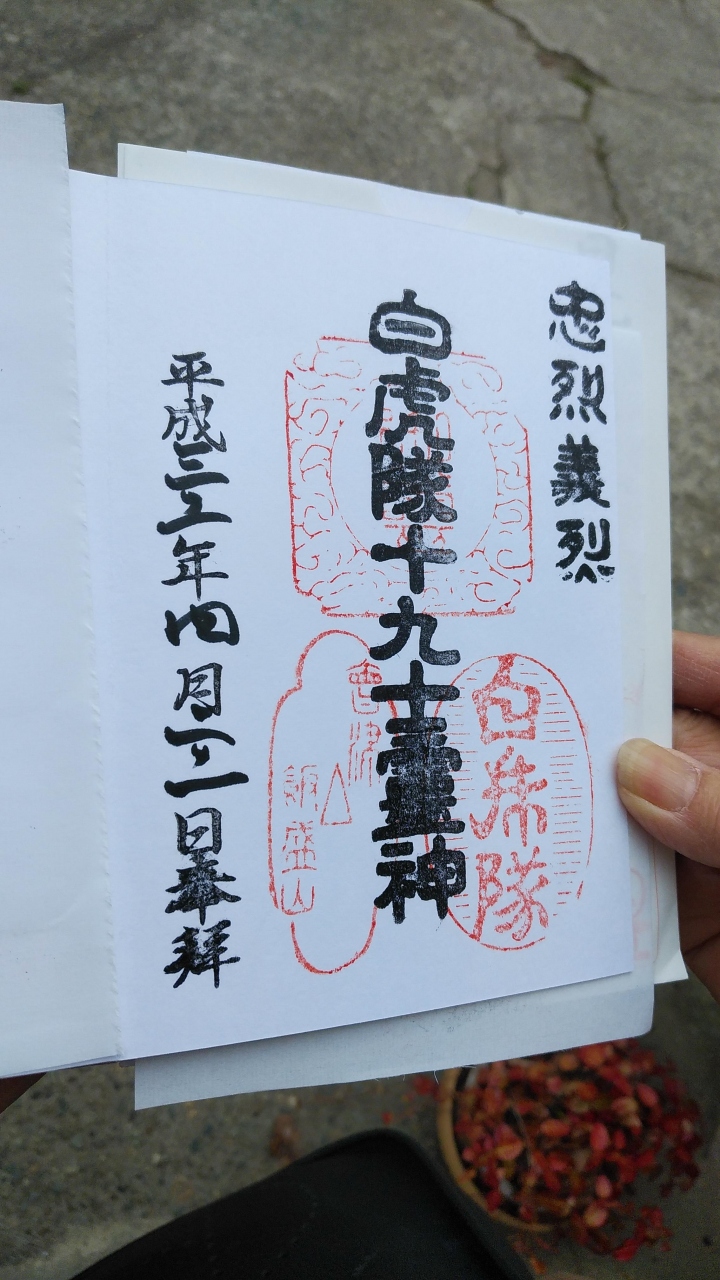 忠烈義烈
白虎隊十九士靈神
白虎隊
會津
飯盛山
平成三十一年四月二十一日奉拝